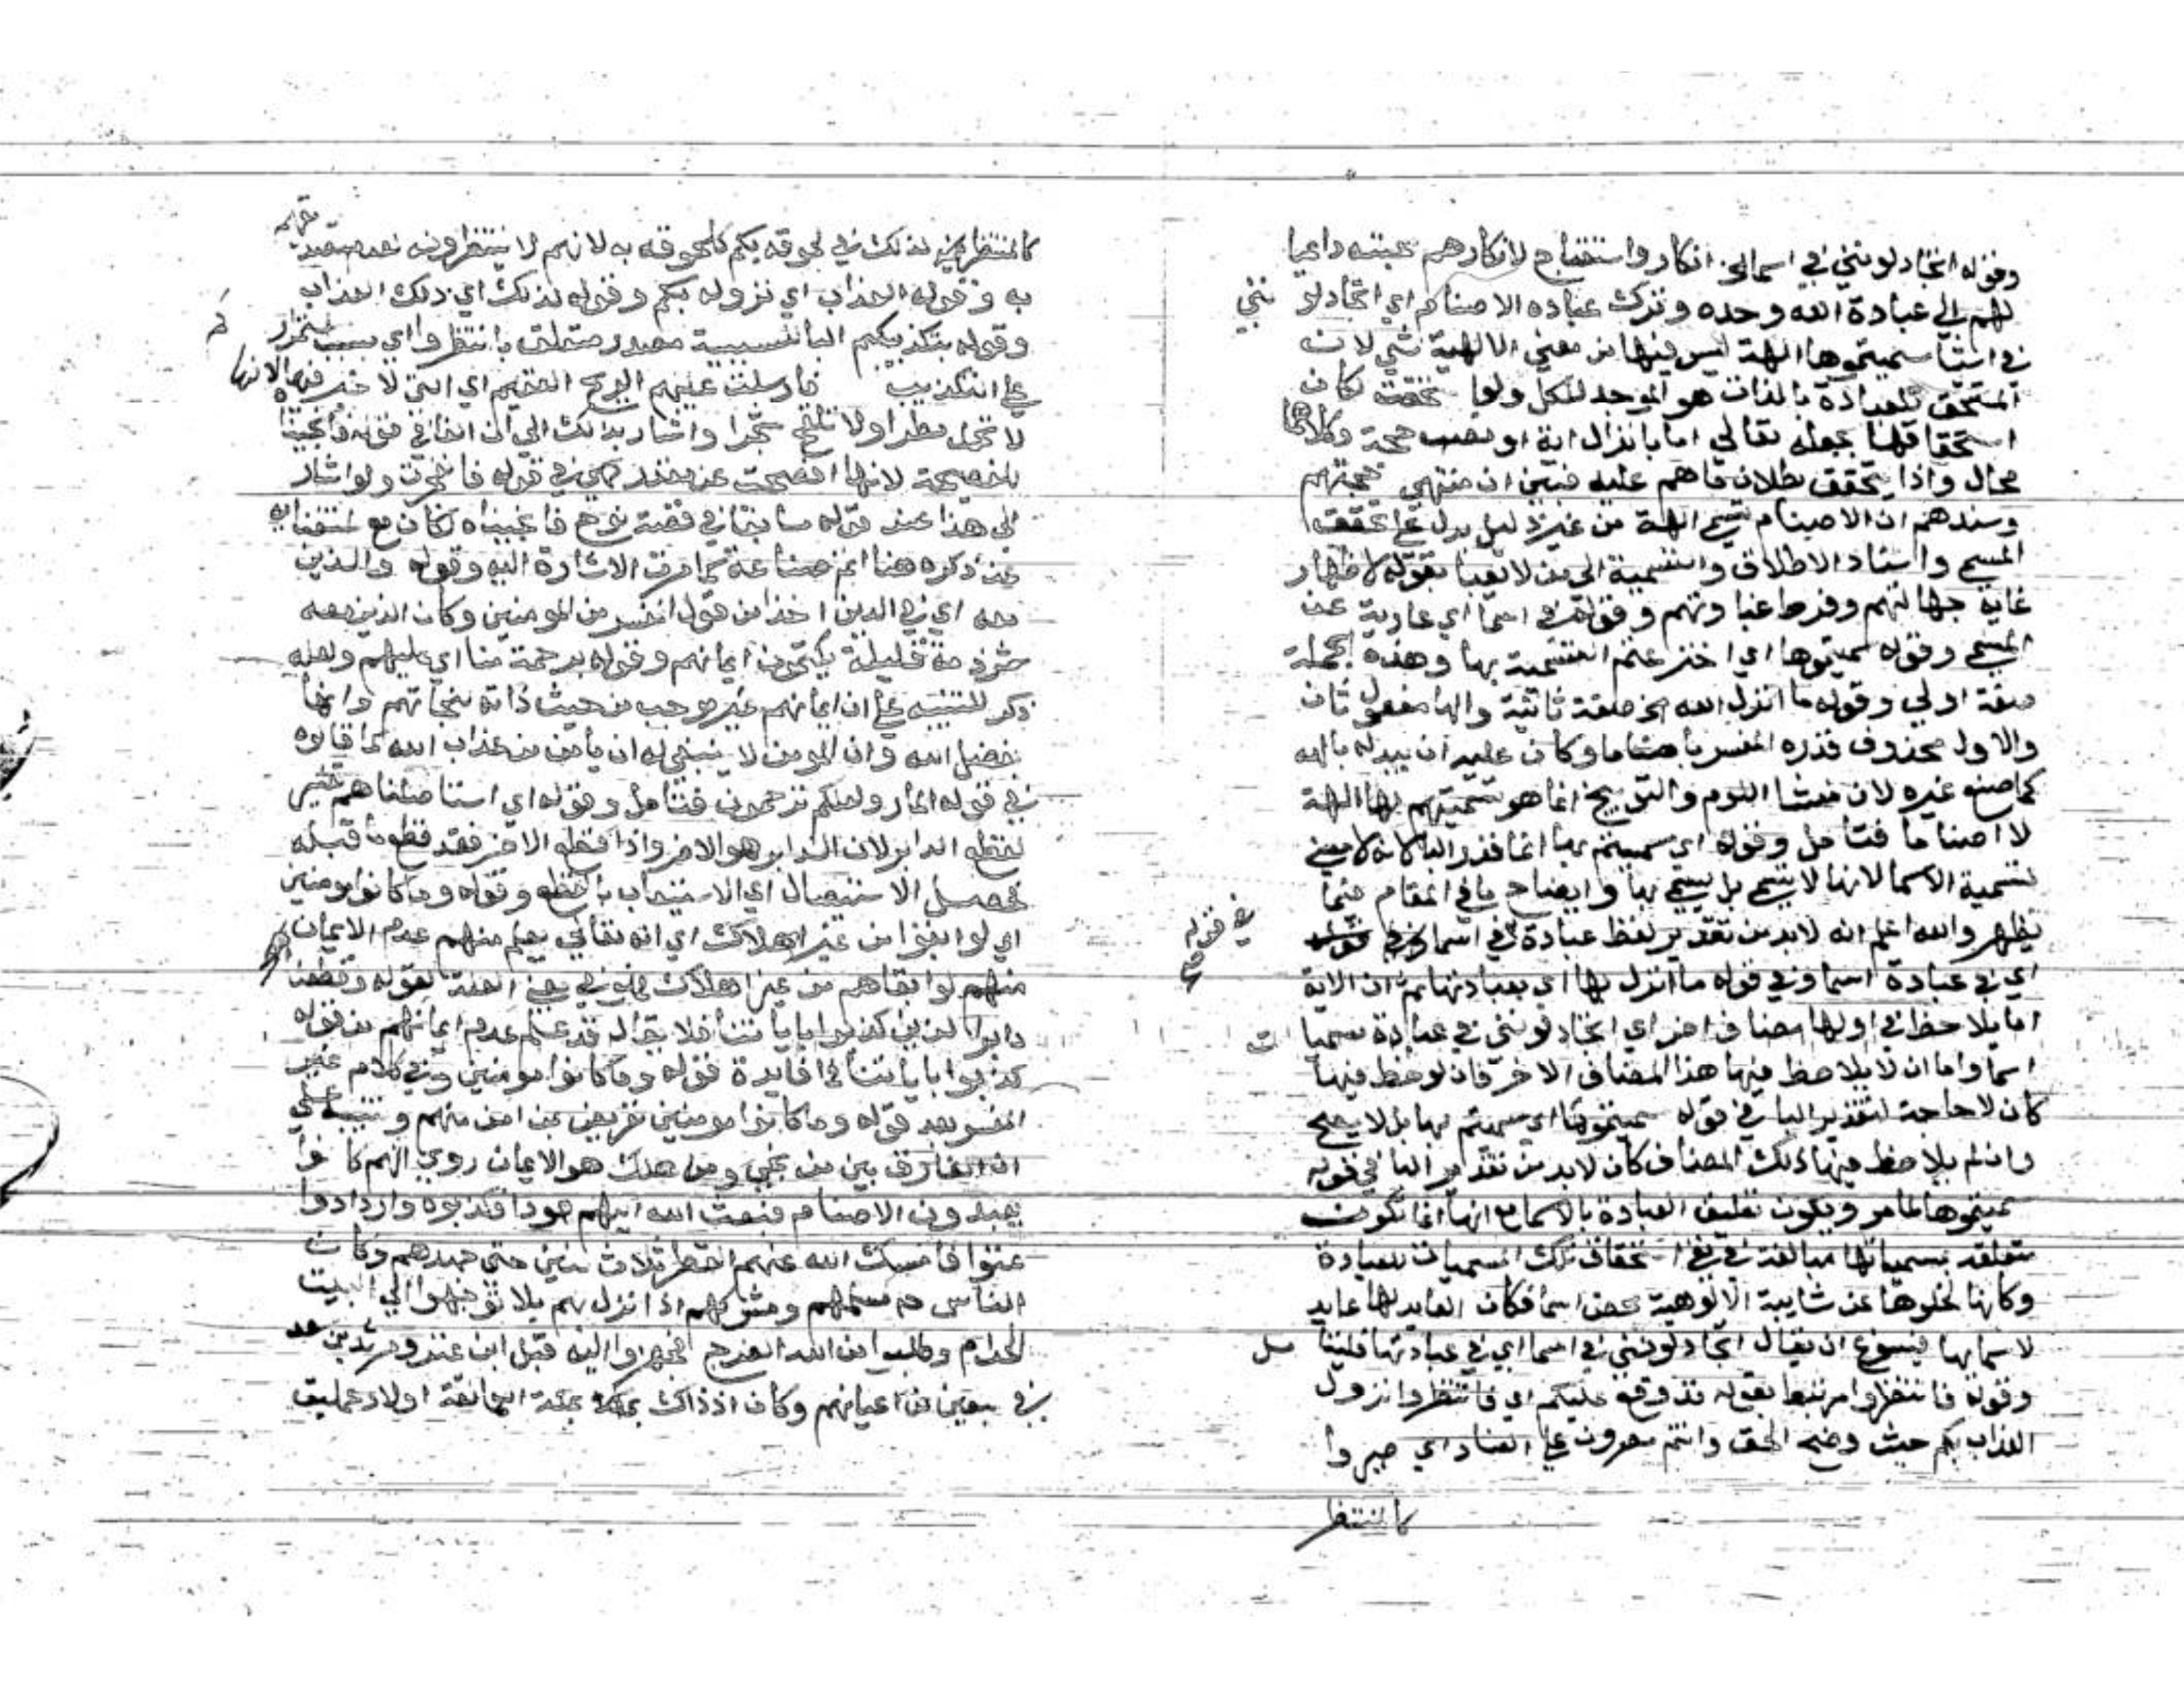 وقوله اتجادلونني في اسما الخ انكار واستقباح لانكارهم مجيئه داعيا
لهم الي عبادة الله وحده وترك عبادة الاصنام اي اتجادلونني
في اشيا سميتموها الهة ليس فيها من معني الالهية شي لان
المستحق للعبادة بالذات هو الموجد للكل ولو استحقت لكان
استحقاقها بجعله تعالي اما بانزال اية او نصب حجة وكلاهما
محال واذا تحقق بطلان ما هم عليه فتبين ان منتهي حجتهم
وسندهم ان الاصنام تسمي الهة من غير دليل يدل علي تحقق
المسمي واسناد الاطلاق والتسمية الي من لا يعبا بقوله لاظهار
غاية جهالتهم وفرط غباوتهم وقوله في اسما اي عارية عن
المسمي وقوله سميتموها اي اخترعتم التسمية بها وهذه الجملة
صفة اولي وقوله ما انزل الله الخ صفة ثانية والها مفعول ثان
والاول محذوف قدره المفسر باصناما وكان عليه ان يبدله بالهه
كما صنع غيره لان منشا اللوم والتوبيخ انما هو تسميتهم بها الهة
لا اصناما فتامل وقوله اي سميتم بها انما قدر البا لانه لا معني
لتسمية الاسما لانها لا تسمي بل يسمي بها وايضاح ما في المقام فيما
يظهر والله اعلم انه لابد من تقدير لفظ عبادة في اسما وفي قوله
اي في عبادة اسما وفي قوله ما انزل بها اي بعبادتها ثم ان الاية
اما يلاحظ في اولها مضاف اخر اي اتجادلونني في عبادة مسميات
اسما واما ان لا يلاحظ فيها هذا المضاف الاخر فان لوحظ فيها
كان لا حاجة لتقدير البا في قوله سميتموها اي سميتم بها بل لا يصح
وان لم يلاحظ فيها ذلك المضاف كان لابد من تقدير البا في قوله
سميتموها لما مر ويكون تعليق العبادة بالاسما مع انها انما تكون
متعلقه بمسمياتها مبالغة في نفي استحقاق تلك المسميات للعبادة
وكانها لخلوها عن شايبة الالوهية محض اسما فكان العابد لها عابد
لاسمايها فيسوغ ان يقال اتجادلونني في اسما اي في عبادتها فليتامل
وقوله فانتظروا مرتبط بقوله قد وقع عليكم اي فانتظروا نزول
العذاب بكم حيث وضح الحق وانتم مصرون علي العناد اي صيروا
كالمنتظر
كالمنتظرين لذلك في لحوقه بكم كلحوقه به لانهم لا ينتظرونه لعدم تصديقهم
به وقوله العذاب اي نزوله بكم وقوله لذلك اي ذلك العذاب
وقوله بتكذيبكم البا للسببية متعلق بانتظروا اي بسبب استمراركم
علي التكذيب فارسلت عليهم الريح العقيم اي التي لا خير فيها لانها
لا تحمل مطرا ولا تلقح شجرا واشار بذلك الي ان الفا في قوله فانجينا
فصيحة لانها افصحت عن مقدر كهي في قوله فانفجرت ولو اشار
الي هذا عند قوله سابقا في قصة نوح فانجيناه لكان مع استغنايه
عن ذكره هنا اتم صناعة كما مرت الاشارة اليه وقوله والذين
معه اي في الدين اخذا من قول المفسر من المومنين وكان الذين معه
شرذمة قليلة يكتمون ايمانهم وقوله برحمة منا اي عليهم ولعله
ذكر للتنبيه علي ان ايمانهم غير موجب من حيث ذاته نجاتهم وانها
بفضل الله وان المومن لا ينبغي له ان يامن من عذاب الله كما قالوه
في قوله المار ولعلكم ترحمون فتامل وقوله اي استاصلناهم تفسير
لقطع الدابر لان الدابر هو الاخر واذا قطع الاخر فقد قطع ما قبله
فحصل الاستيصال اي الاستيعاب بالقطع وقوله وما كانوا مومنين
اي لو ابقوا من غير اهلاك اي انه تعالي يعلم منهم عدم الايمان
منهم لو ابقاهم من غير اهلاك فهو في معني العلة لقوله وقطعنا
دابر الذين كذبوا باياتنا فلا يقال قد علم عدم ايمانهم من قوله
كذبوا باياتنا فما فايدة قوله وما كانوا مومنين وفي كلام غير
المفسر بعد قوله وما كانوا مومنين تعريض بمن امن منهم وتنبيه علي
ان الفارق بين من نجي ومن هلك هو الايمان روي انهم كانوا
يعبدون الاصنام فبعث الله اليهم هودا فكذبوه وازدادوا
عتوا فامسك الله عنهم القطر ثلاث سنين حتي جهدهم وكان
الناس مسلمهم ومشركهم اذا نزل بهم بلا توجهوا الي البيت
الحرام وطلبوا من الله الفرج فجهزوا اليه قيل ابن عنز ومرثد بن سعد
في سبعين من اعيانهم وكان اذذاك بمكة العمالقة اولاد عمليق